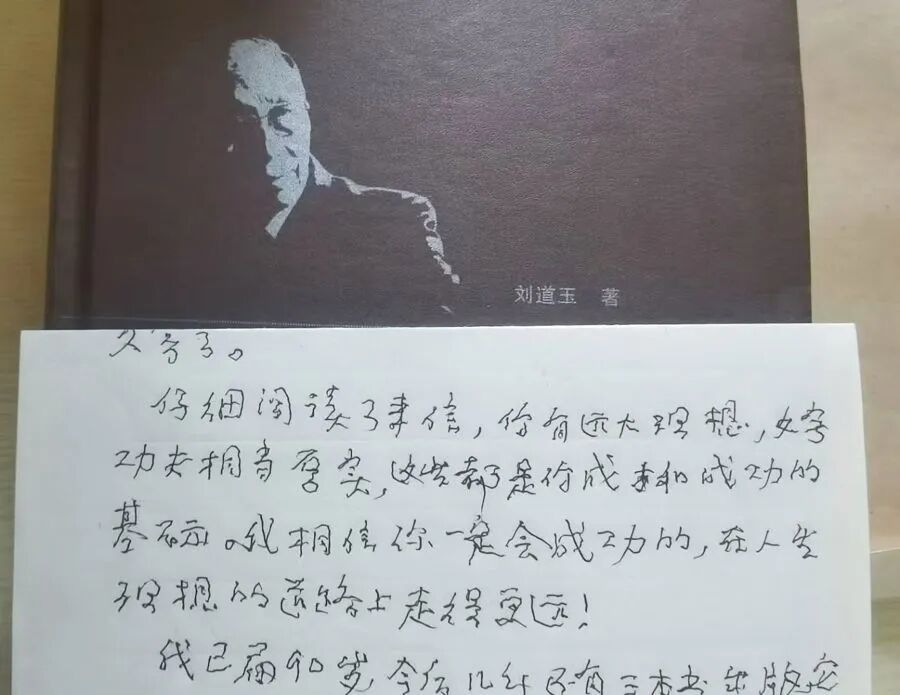 刘道玉 著
仔细阅读了来信，你有远大理想，文字
功夫相当厚实，这些都是你成才和成功的
基础。我相信你一定会成功的，在人生
理想的道路上走得更远！
我已届90岁，今后几年还有三本书出版，